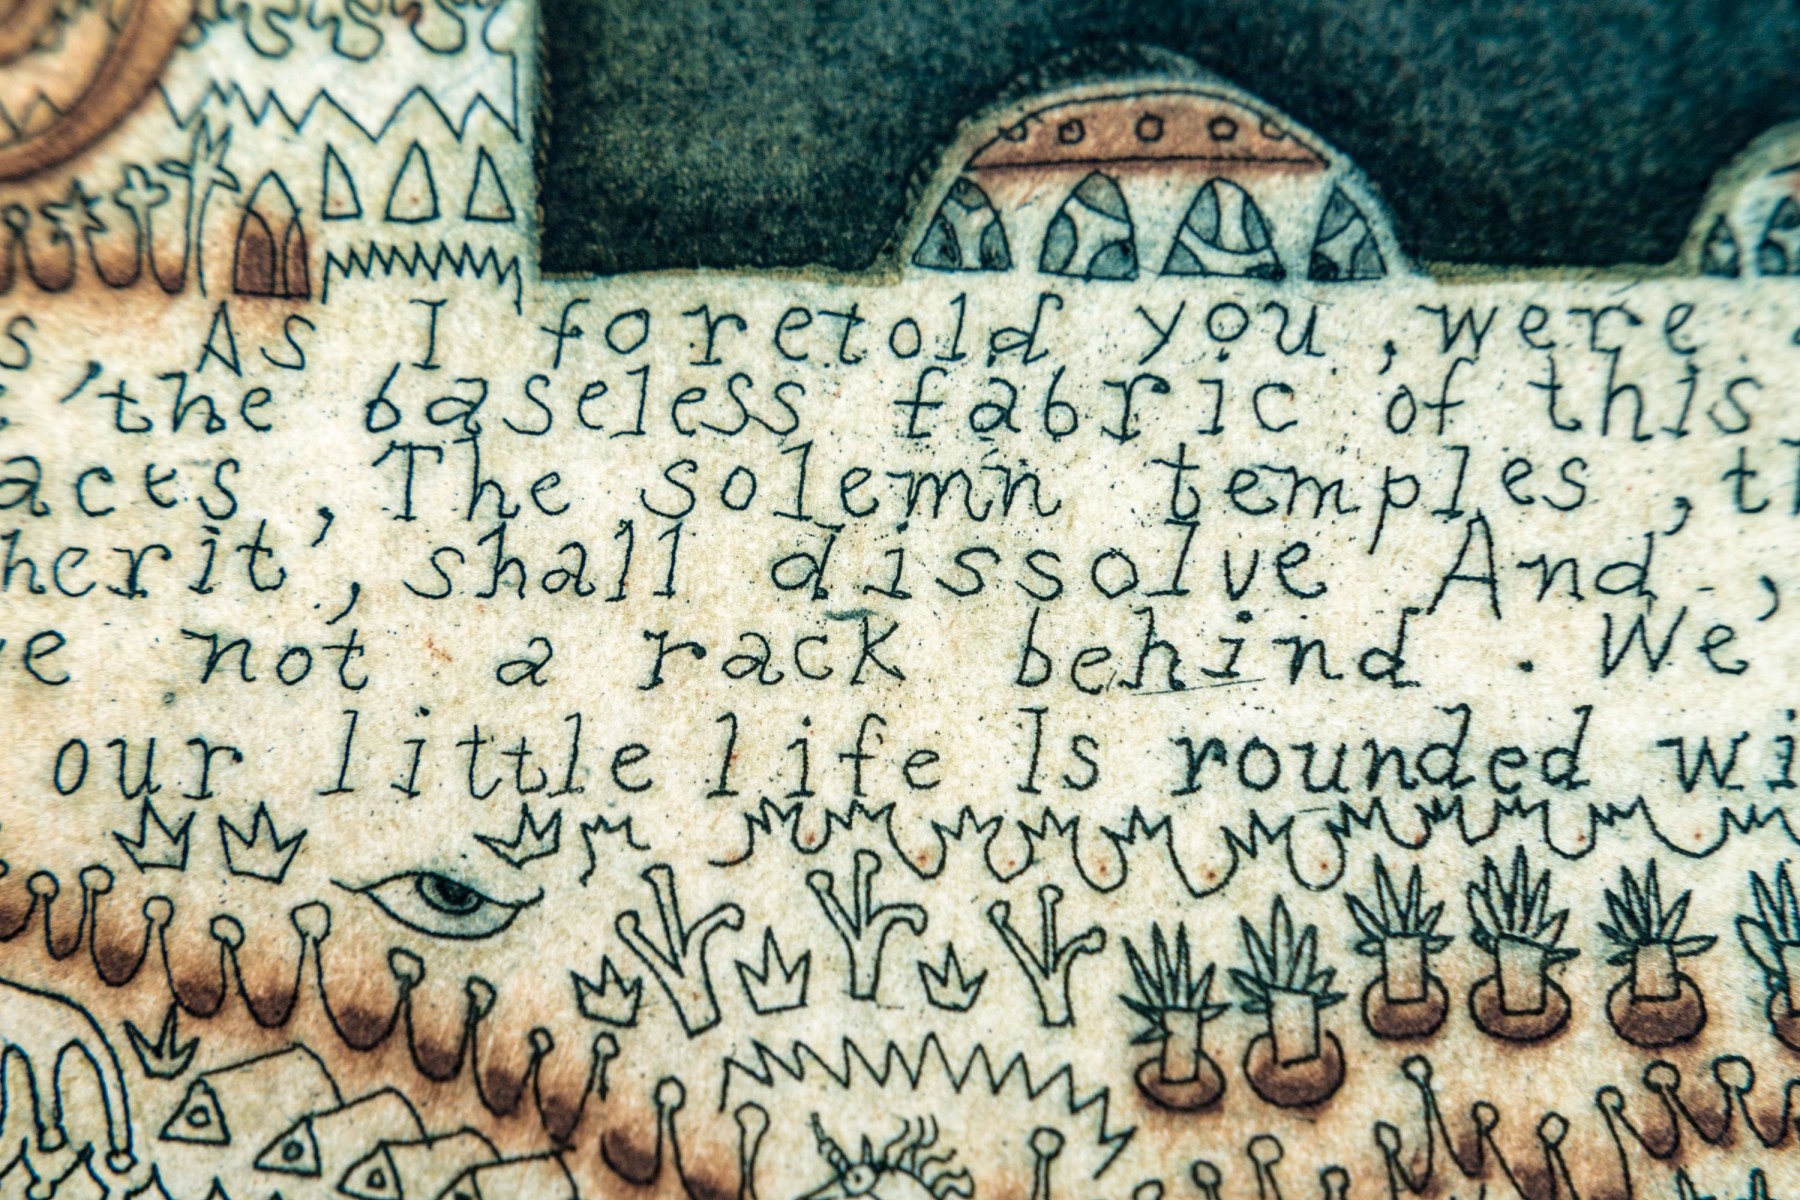 s, As I foretold you, were
'the baseless fabric of this
aces, The solemn temples, th
herit', shall dissolve And,
ve not a rack behind. We'
our little life Is rounded wi